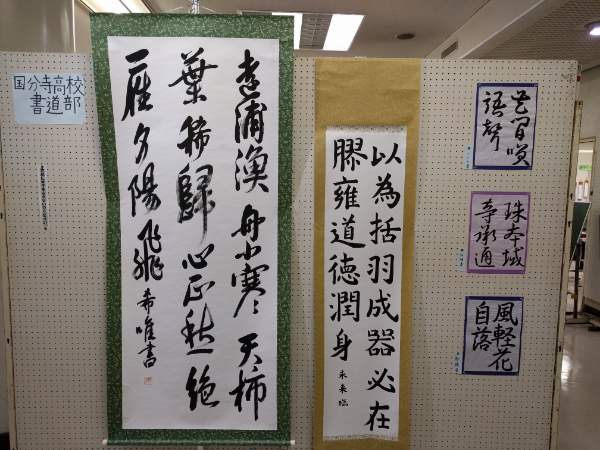 国分寺高校
書道部
遠浦漁舟小寒天柿
葉稀歸心正愁絶
一雁夕陽飛
希唯書
以為括羽成器必在
膠雍道徳潤身
未来臨
花間咲
語聲
風軽花
自落